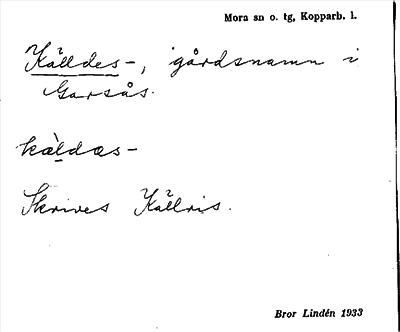 Mora sn o. tg, Kopparb. l.
Källdes-, gårdsnamn i
Garsås.
kàldæs-
Skrives Källris.
Bror Lindén 1933